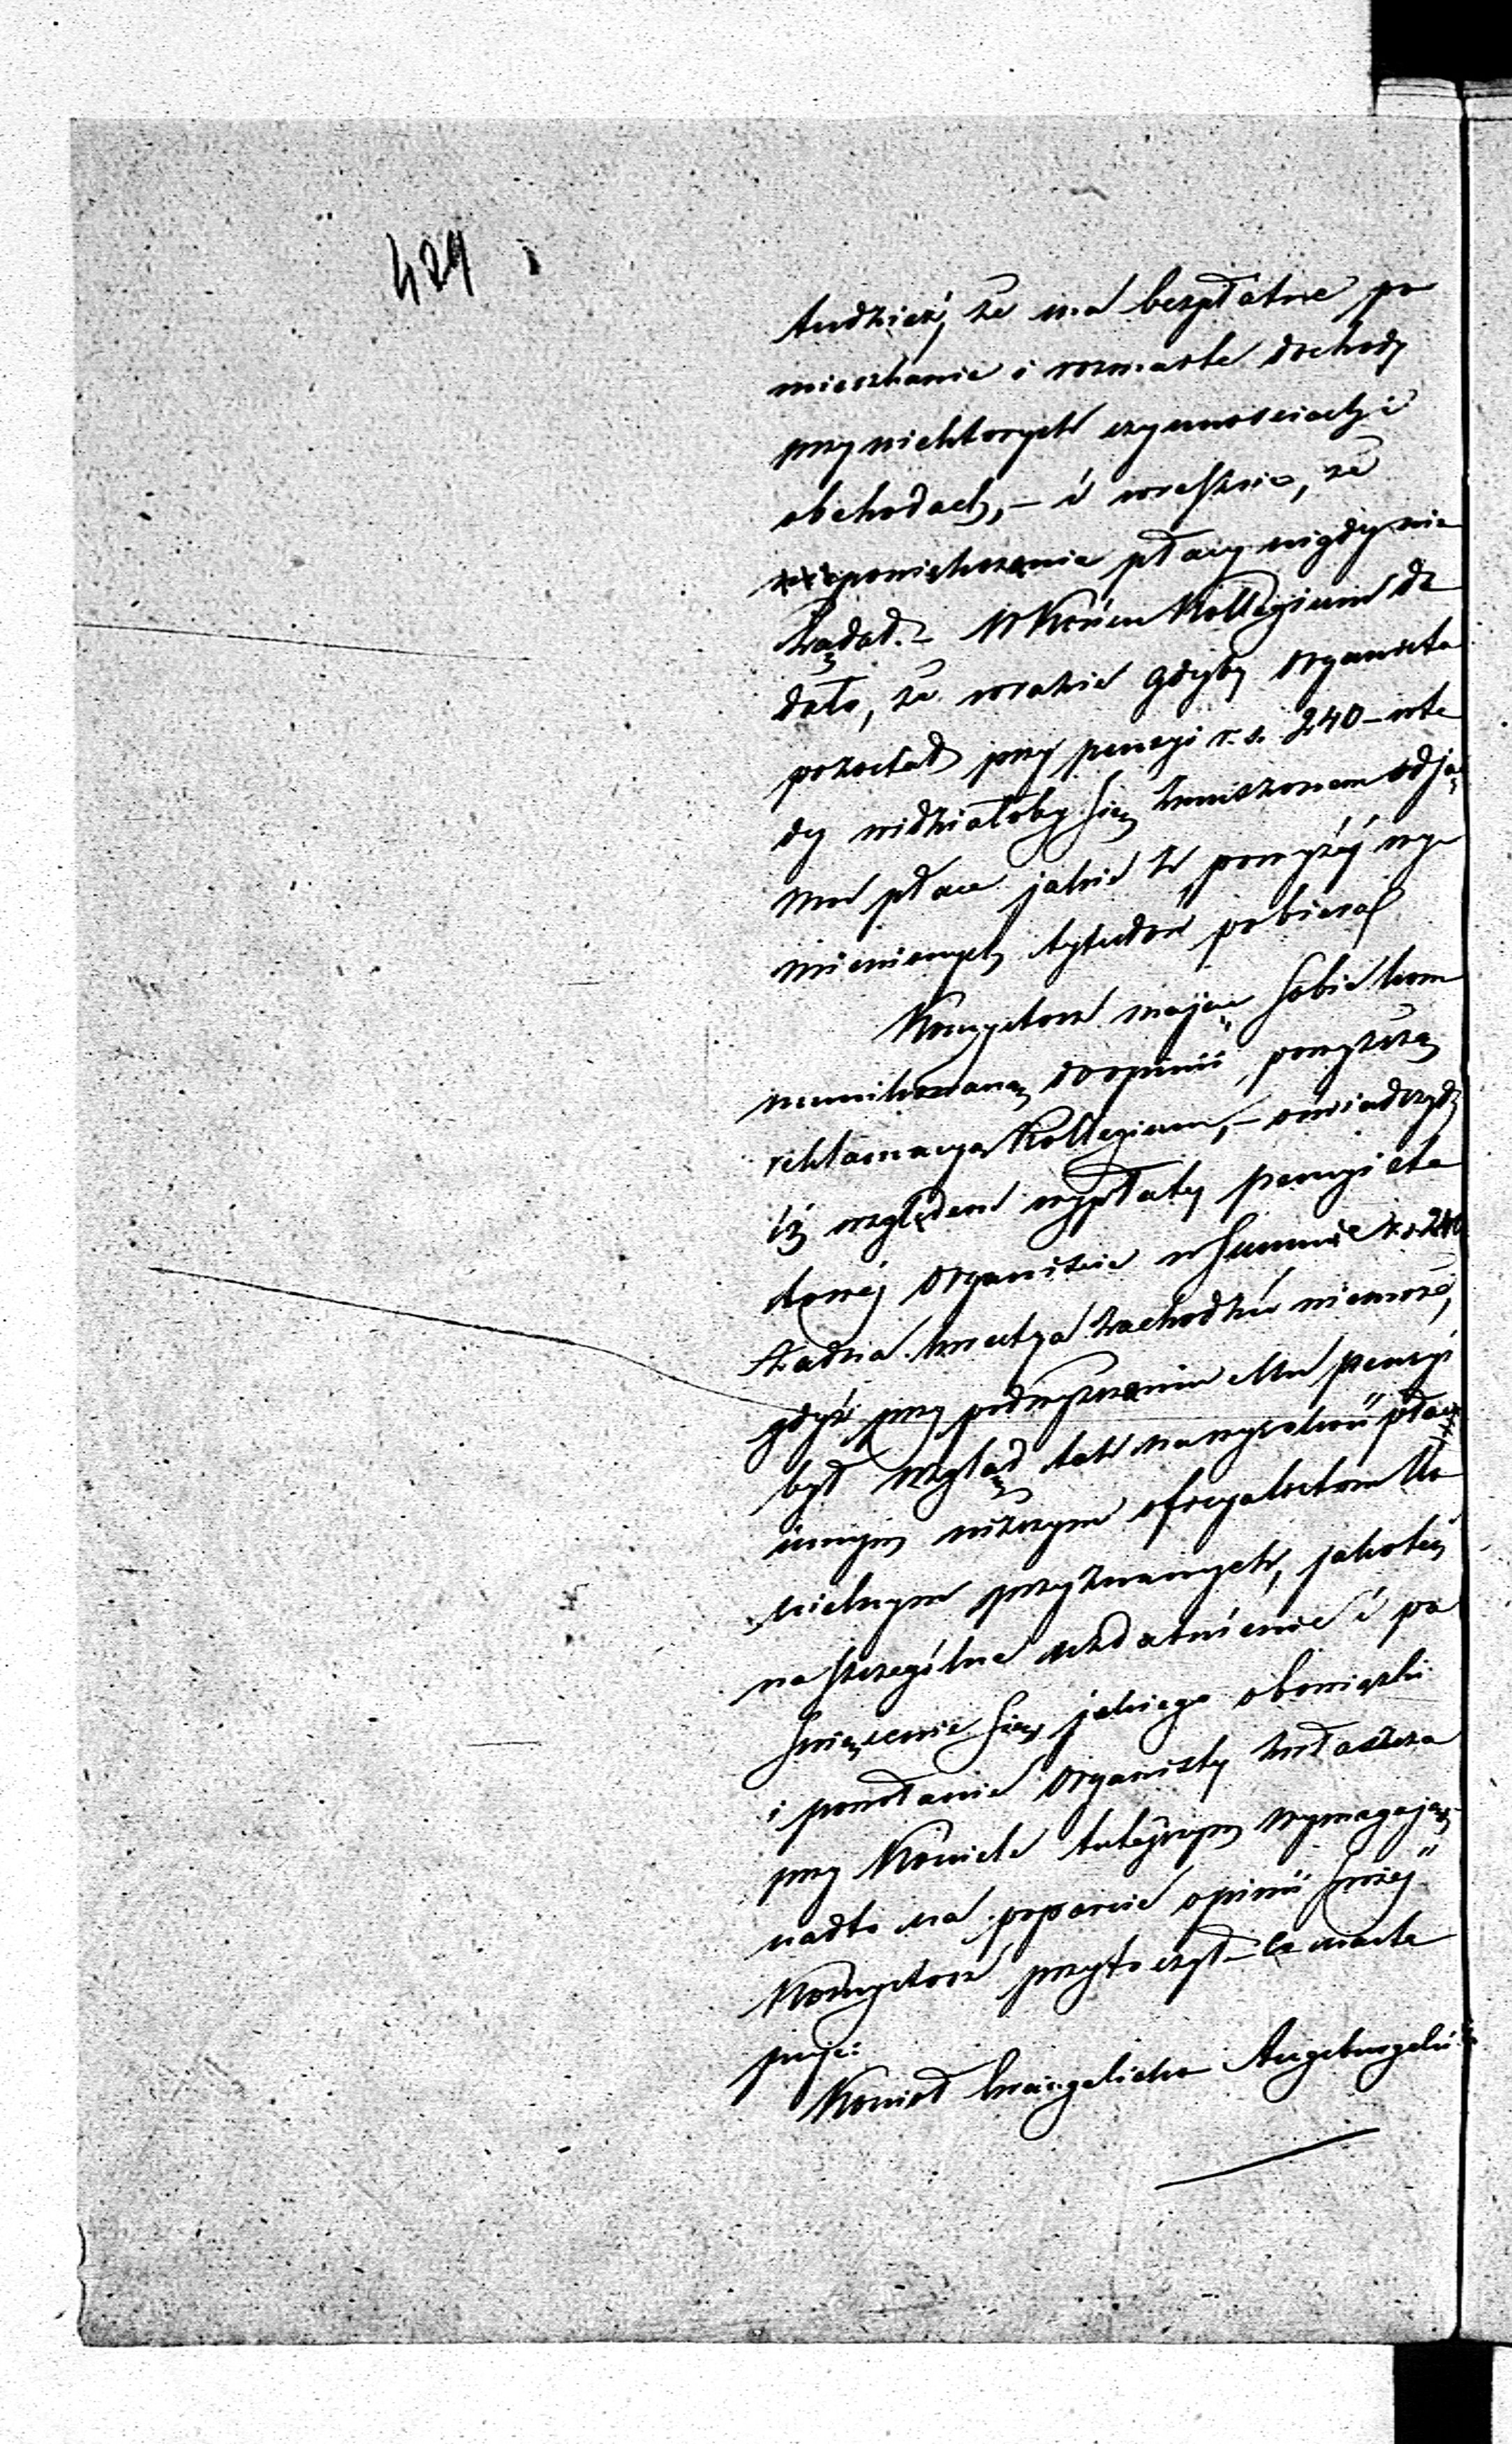 429
tudzież, że ma bezpłatne po
mieszkanie i rozmaite dochody
przy niektorych czynnościach i
obchodach, – i wreszcie, że
powiększenia płacy nigdy nie
żądał. – W Końcu Kollegium do
dało, że w razie gdyby Organista
pozostał przy pensyi r. s. 240 – wte
dy widziałoby się zmuszonem odją
mu płace jakie z powyżéj wy
mienionych tytułów pobierał
Konsystorz mając sobie kom
munikowaną do opinii powyższą
reklamacyą Kollegium, – oświadczył,
iż względem wypłaty pensyi eta
towéj Organiście w Summie r. s. 240
żadna kwestya zachodzić niemoże,
gdyż przy podwyższeniu Mu pensyi
był wzgląd tak na wysokość płac
innym niższym oficyalistom Ko
ścielnym przyznanych, jakoteż
na szczególne uzdatnienie i po
święcenie się, jakiego obowiązki
i powołanie Organisty zwłaszcza
przy Kościele tutejszym wymagają,
nadto na poparcie opinii swojéj
Konsystorz przytoczył co nastę
puje:
Kościoł Ewangelicko Augsburgski